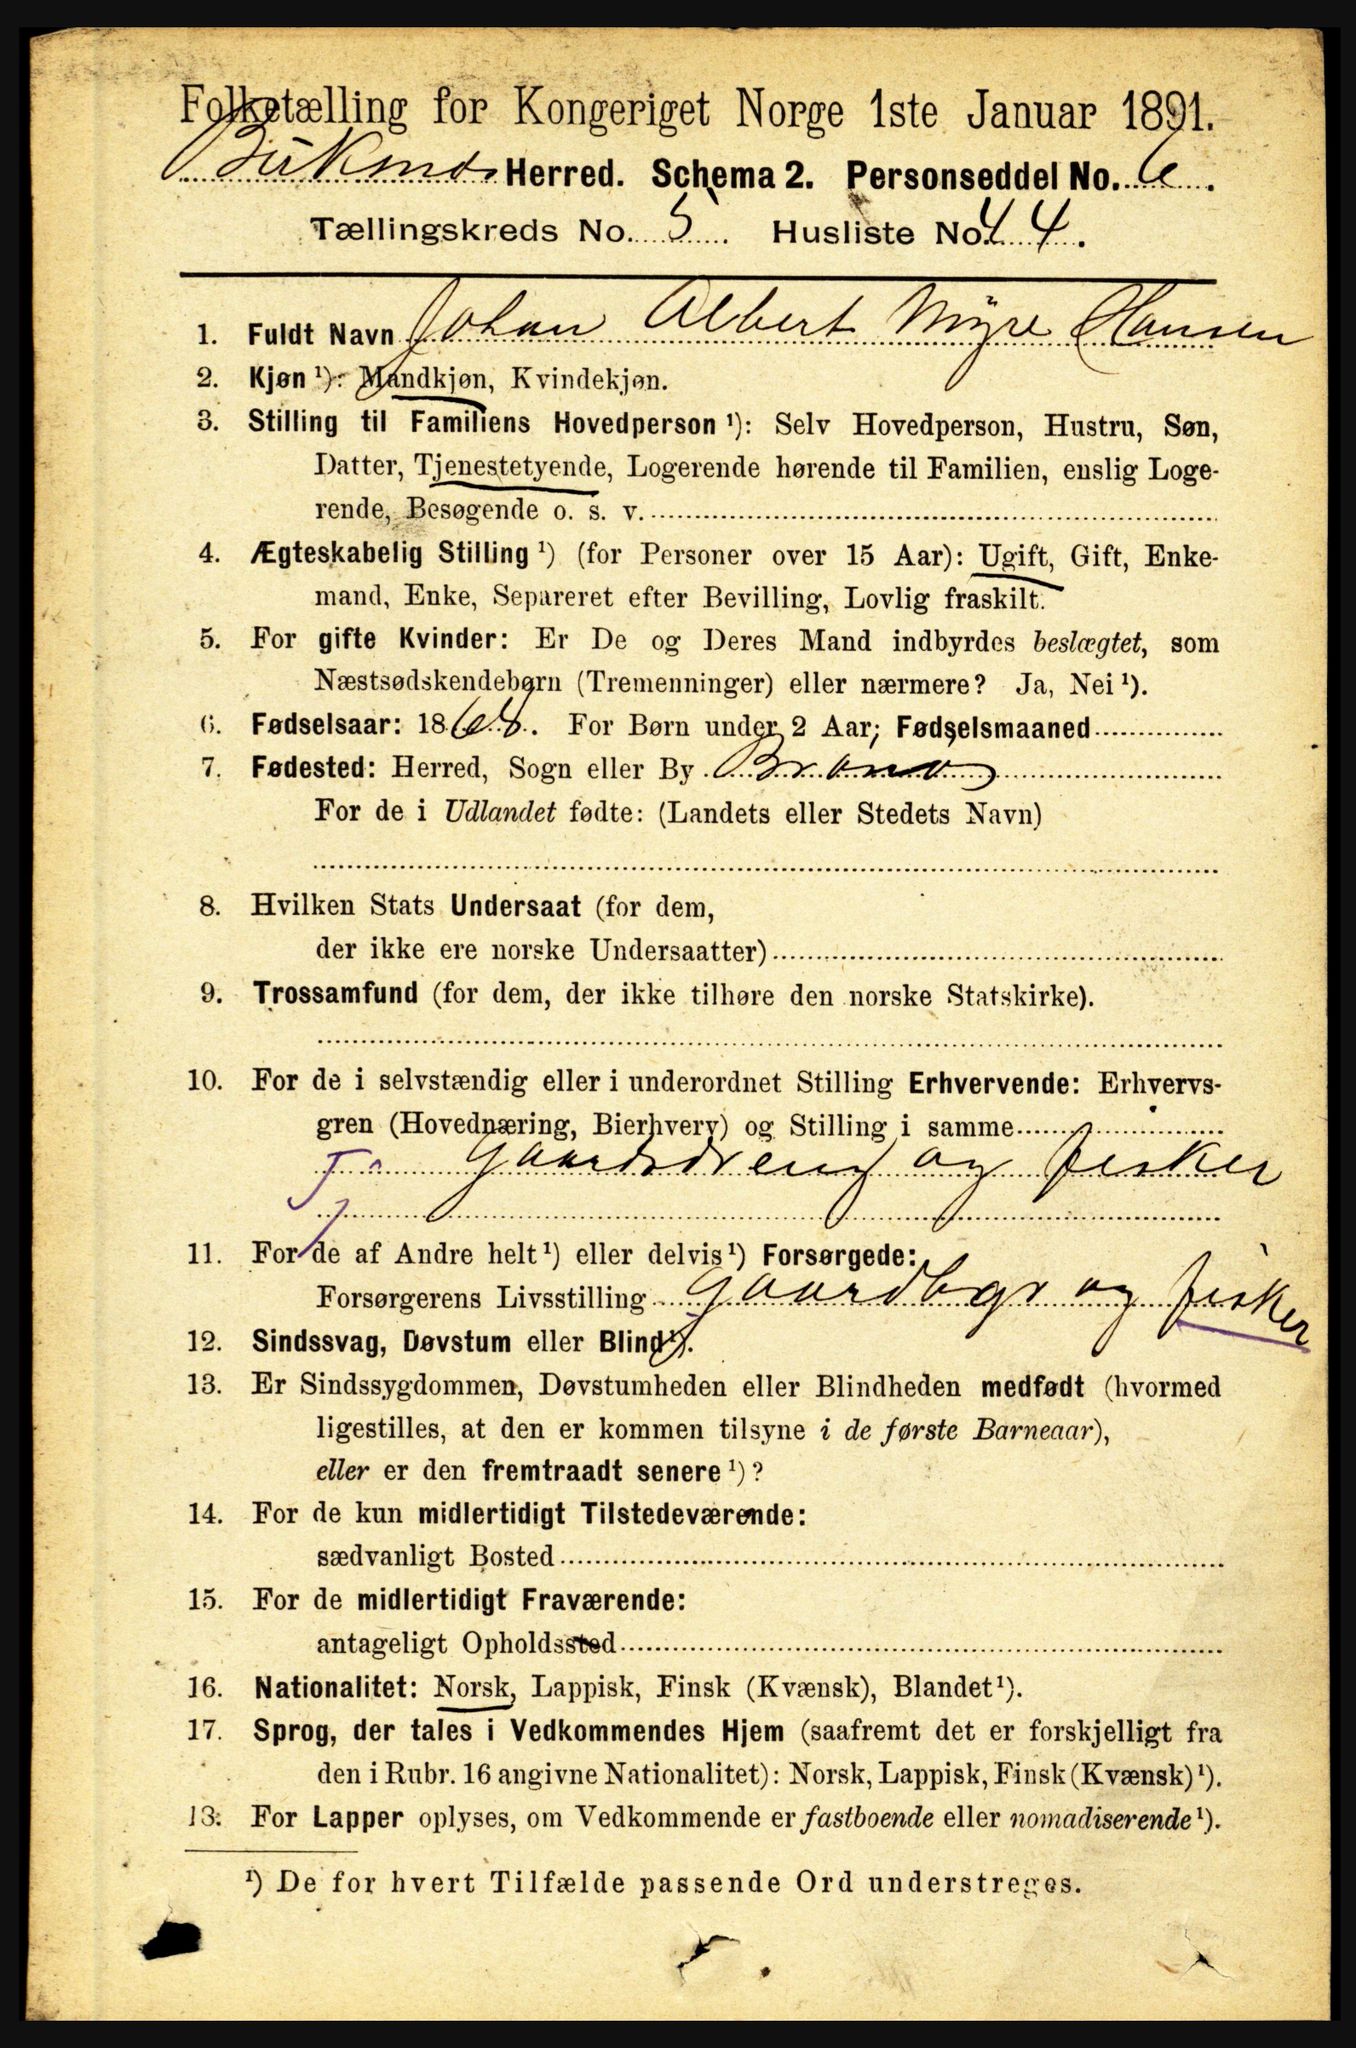 Folketælling for Kongeriget Norge 1ste Januar 1891.
Buksnes Herred. Schema 2. Personseddel No. 6.
Tællingskreds No. 5. Husliste No. 44.
1. Fuldt Navn Johan Albert Myre Hansen
2. Kjøn ¹): Mandkjøn, Kvindekjøn.
3. Stilling til Familiens Hovedperson ¹): Selv Hovedperson, Hustru, Søn,
Datter, Tjenestetyende, Logerende hørende til Familien, enslig Loge-
rende, Besøgende o. s. v.
4. Ægteskabelig Stilling ¹) (for Personer over 15 Aar): Ugift, Gift, Enke-
mand, Enke, Separeret efter Bevilling, Lovlig fraskilt.
5. For gifte Kvinder: Er De og Deres Mand indbyrdes beslægtet, som
Næstsødskendebørn (Tremenninger) eller nærmere? Ja, Nei ¹).
6. Fødselsaar: 1868. For Børn under 2 Aar; Fødselsmaaned
7. Fødested: Herred, Sogn eller By Brønø
For de i Udlandet fødte: (Landets eller Stedets Navn)
8. Hvilken Stats Undersaat (for dem,
der ikke ere norske Undersaatter)
9. Trossamfund (for dem, der ikke tilhøre den norske Statskirke).
10. For de i selvstændig eller i underordnet Stilling Erhvervende: Erhvervs-
gren (Hovednæring, Bierhverv) og Stilling i samme
Tj. Gaardsdreng og fisker
11. For de af Andre helt ¹) eller delvis ¹) Forsørgede:
Forsørgerens Livsstilling Gaardbgr og fisker
12. Sindssvag, Døvstum eller Blind ¹).
13. Er Sindssygdommen, Døvstumheden eller Blindheden medfødt (hvormed
ligestilles, at den er kommen tilsyne i de første Barneaar),
eller er den fremtraadt senere ¹)?
14. For de kun midlertidigt Tilstedeværende:
sædvanligt Bosted
15. For de midlertidigt Fraværende:
antageligt Opholdssted
16. Nationalitet: Norsk, Lappisk, Finsk (Kvænsk), Blandet ¹).
17. Sprog, der tales i Vedkommendes Hjem (saafremt det er forskjelligt fra
den i Rubr. 16 angivne Nationalitet): Norsk, Lappisk, Finsk (Kvænsk) ¹).
13. For Lapper oplyses, om Vedkommende er fastboende eller nomadiserende ¹).
¹) De for hvert Tilfælde passende Ord understreges.